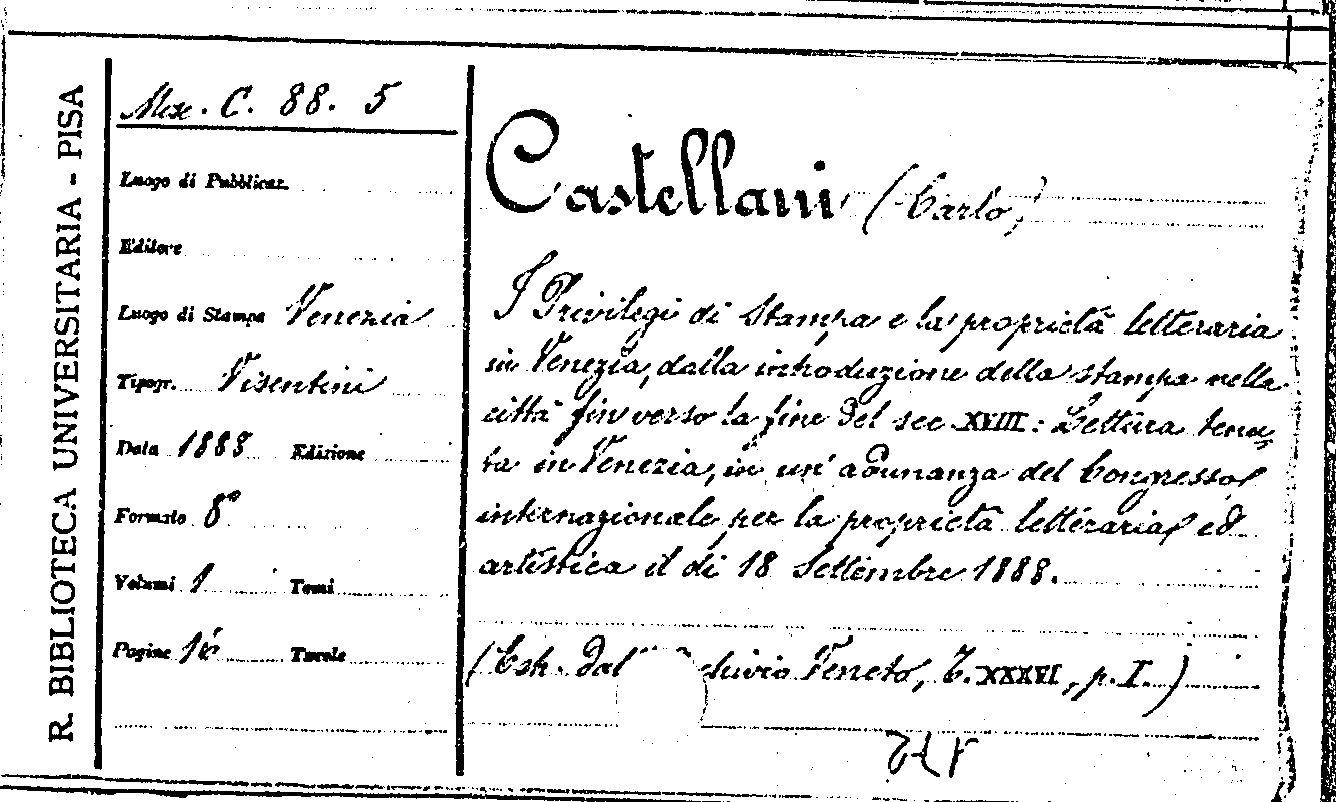 R. BIBLIOTECA UNIVERSITARIA - PISA
Misc. C. 88. 5
Luogo di Pubblicaz.
Editore
Luogo di Stampa Venezia
Tipogr. Visentini
Data 1888 Edizione
Formato 8°
Volumi 1 Tomi
Pagine 16 Tavole
Castellani (Carlo)
I Privilegi di stampa e la proprietà letteraria
in Venezia, dalla introduzione della stampa nella
città fin verso la fine del sec XVIII: Lettura tenu-
ta in Venezia, in un' adunanza del Congresso
internazionale per la proprietà letteraria ed
artistica il dì 18 Settembre 1888.
(Estr. dal chivio Veneto, T. XXXVI, p. I.)